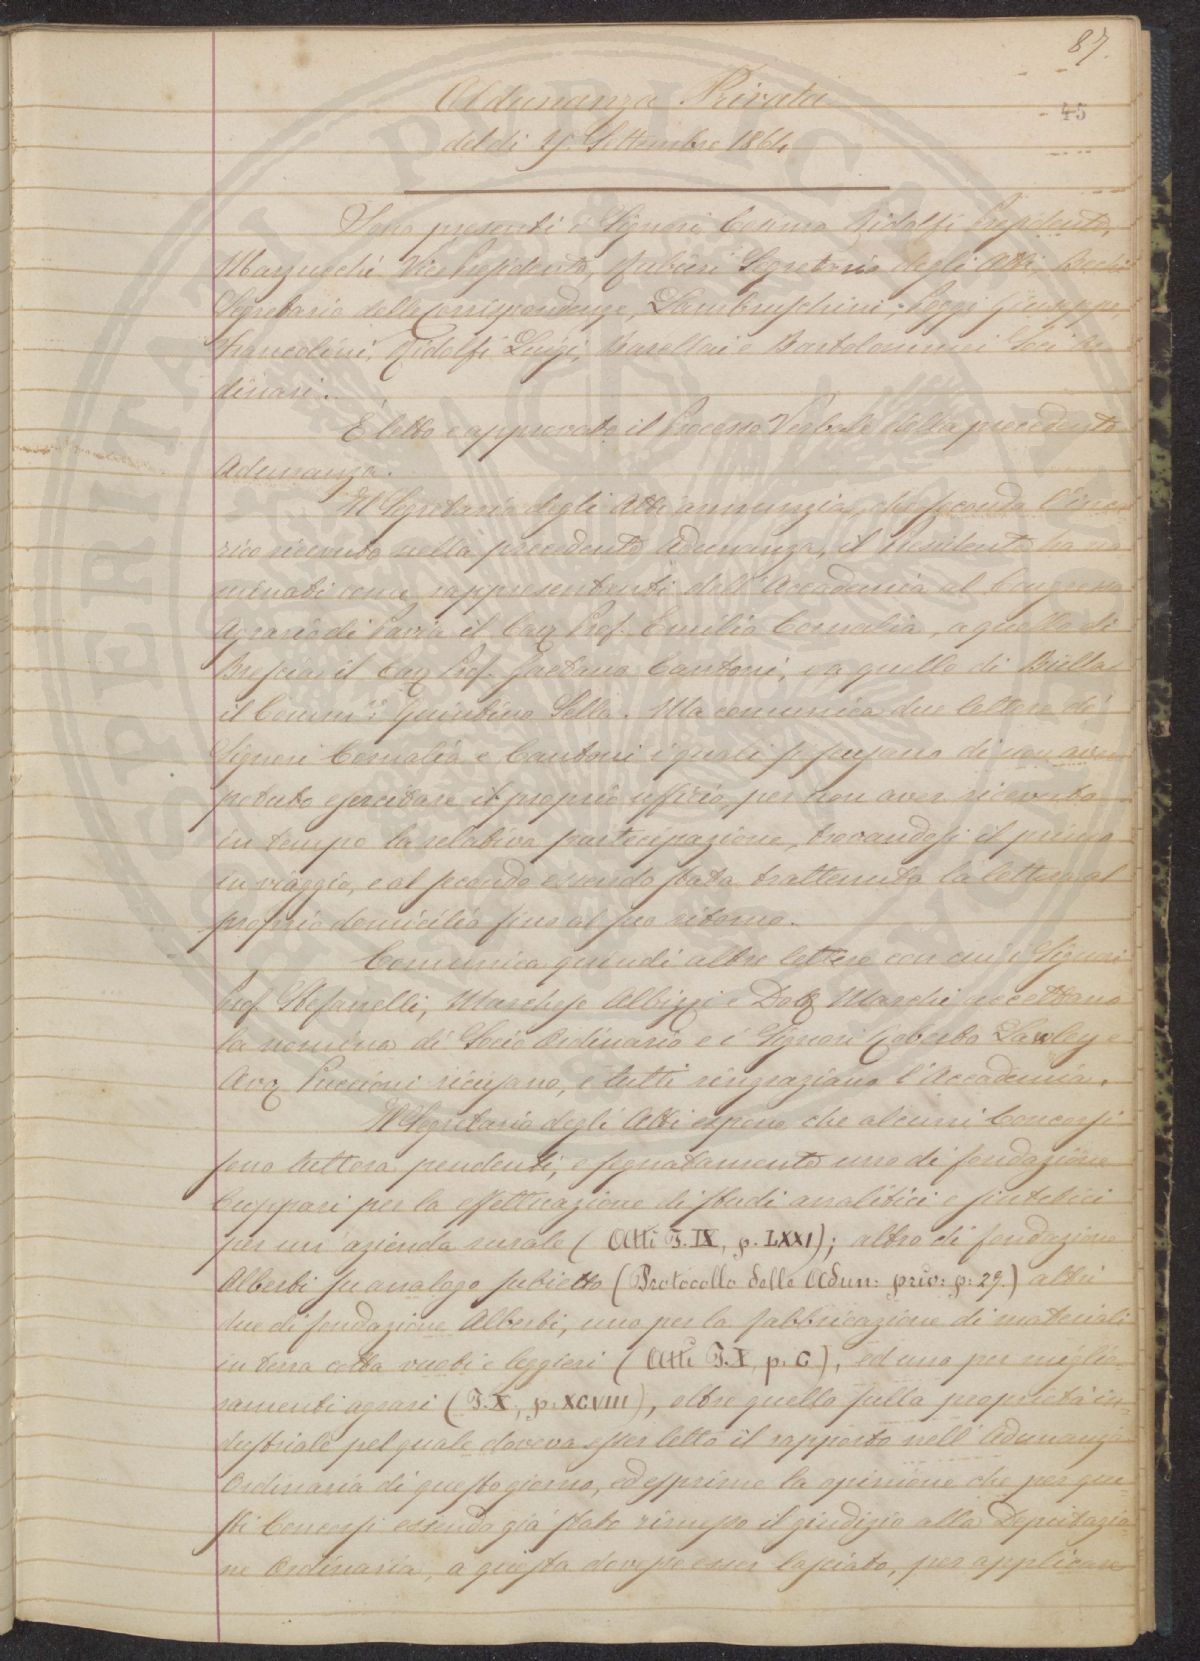 87.
45
Adunanza Privata
del dì 4 Settembre 1864
Sono presenti i Signori Cosimo Ridolfi Presidente,
Marzucchi Vice Presidente, Rubieri Segretario degli Atti,
Segretario delle Corrispondenze, Lambruschini, Poggi Giuseppe
Francolini, Ridolfi Luigi, e Bartolommei Soci Or
dinari.
È letto e approvato il Processo Verbale della precedente
Adunanza.
Il Segretario degli Atti annunzia, che secondo l'inca
rico ricevuto nella precedente Adunanza, il Presidente ha no
minati come rappresentanti dell'Accademia al Congresso
Agrario di Pavia il Cav. Prof. Emilio Cornalia, a quello di
Brescia il Cav. Prof. Gaetano Cantoni, e a quello di Biella
il Comm.re Quintino Sella. Ma comunica due lettere dei
Signori Cornalia e Cantoni i quali si scusano di non aver
potuto esercitare il proprio uffizio, per non aver ricevuto
in tempo la relativa partecipazione, trovandosi il primo
in viaggio, e al secondo essendo stata trattenuta la lettera al
proprio domicilio fino al suo ritorno.
Comunica quindi altre lettere con cui i Signori
Prof. Stefanelli, Marchese Albizzi e Dott. Marchi accettano
la nomina di Socio Ordinario e i Signori Roberto Lawley e
Avv. Puccioni ricusano, e tutti ringraziano l'Accademia.
Il Segretario degli Atti espone che alcuni Concorsi
sono tuttora pendenti, e segnatamente uno di fondazione
Cuppari per la effettuazione di studi analitici e sintetici
per un'azienda rurale (Atti T. IX, p. LXXI); altro di fondazione
Alberti su analogo subietto (Protocollo delle Adun: priv: p: 29.) altri
due di fondazione Alberti, uno per la fabbricazione di materiali
in terra cotta vuoti e leggieri (Atti T. X, p. C), ed uno per miglio
ramenti agrari (T. X, p. XCVIII), oltre quello sulla proprietà in
dustriale pel quale doveva esser letto il rapporto nell'Adunanza
Ordinaria di questo giorno, ed esprime la opinione che per que
sti Concorsi essendo già stato rimesso il giudizio alla Deputazio
ne Ordinaria, a questa dovesse esser lasciato, per applicare